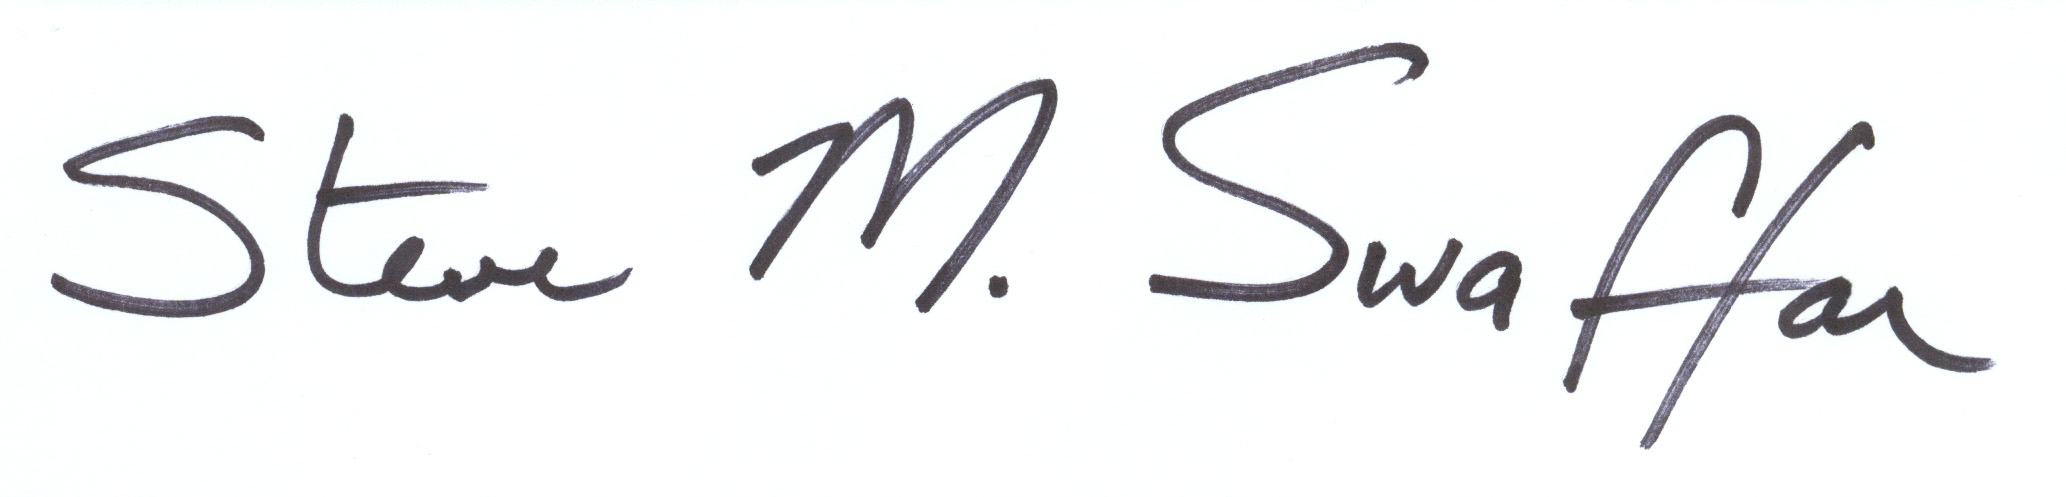 Steve M. Swaffar